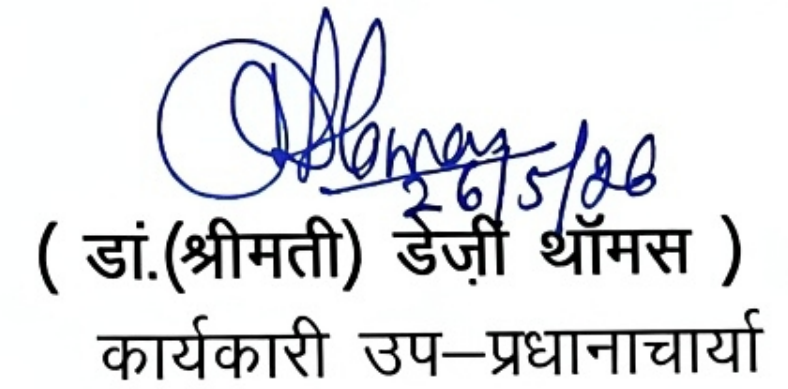 26/5/26
( डां.(श्रीमती) डेज़ी थॉमस )
कार्यकारी उप–प्रधानाचार्या